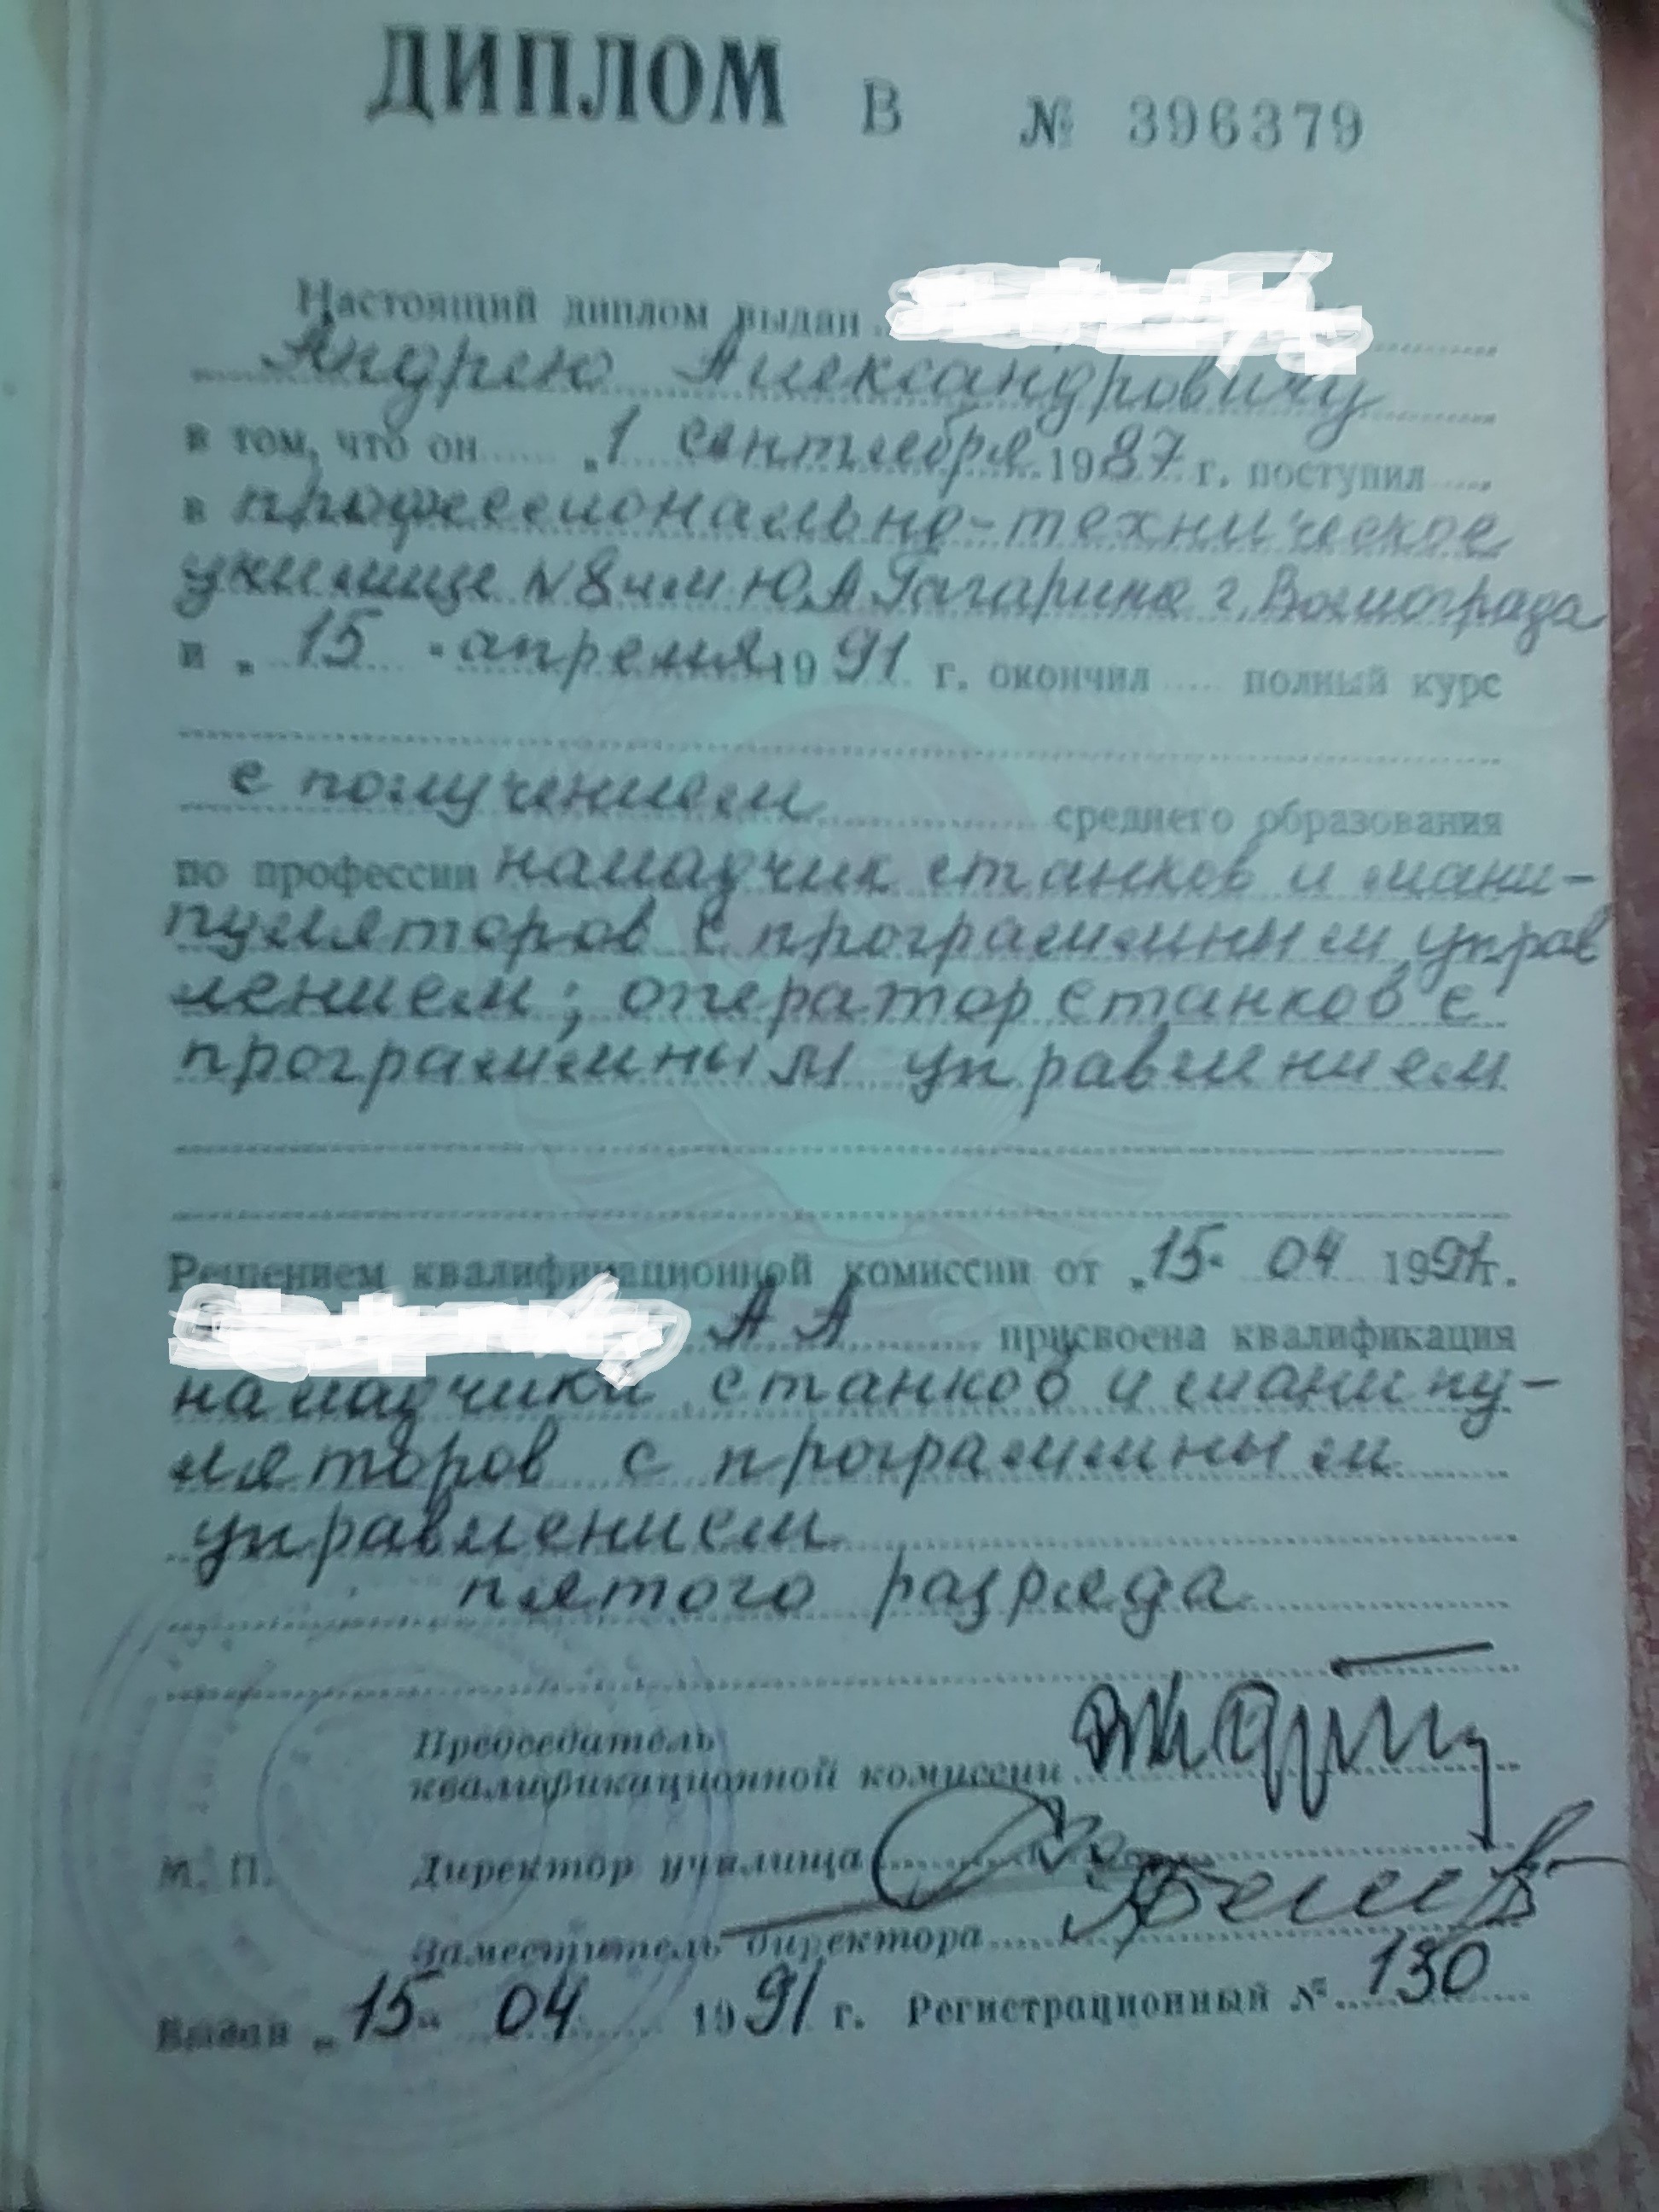 ДИПЛОМ В № 396379
Настоящий диплом выдан
Андрею Александровичу
в том, что он „1 сентября 1987 г. поступил
в профессионально-техническое
училище N8 им Ю.А Гагарина г. Волгограда
и „15" апреля 1991 г. окончил полный курс
с получением среднего образования
по профессии наладчик станков и мани-
пуляторов с программным управ
лением; оператор станков с
программным управлением
Решением квалификационной комиссии от „15" 04 1991 г.
А А присвоена квалификация
наладчика станков и манипу-
ляторов с программным
управлением
пятого разряда
Председатель
квалификационной комиссии
М. П. Директор училища
Заместитель директора
Выдан „15" 04 1991 г. Регистрационный № 130